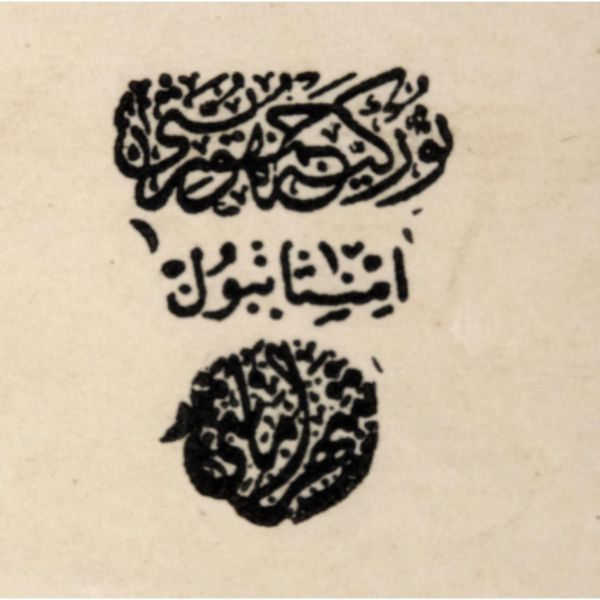 توركيه جمهوريتى
استانبول
شهر امانتى